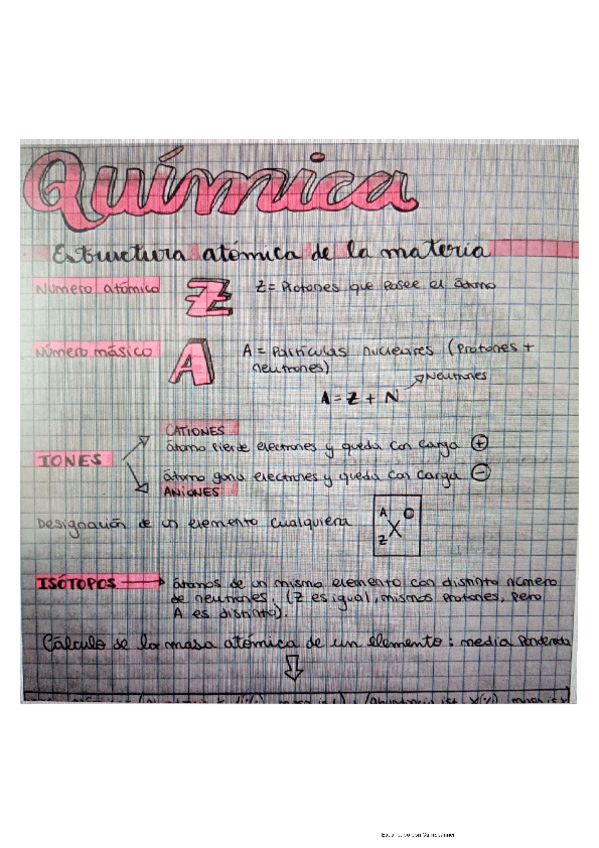 Química
Estructura atómica de la materia
Número atómico Z Z = Protones que posee el átomo
Número másico A A = Partículas nucleares (Protones +
neutrones)
Neutrones
A = Z + N
CATIONES
átomo pierde electrones y queda con carga +
IONES
átomo gana electrones y queda con carga −
ANIONES
Designación de un elemento cualquiera A X Z
ISÓTOPOS → átomos de un mismo elemento con distinto número
de neutrones. (Z es igual, mismos protones, pero
A es distinto).
Cálculo de la masa atómica de un elemento: media Ponderada